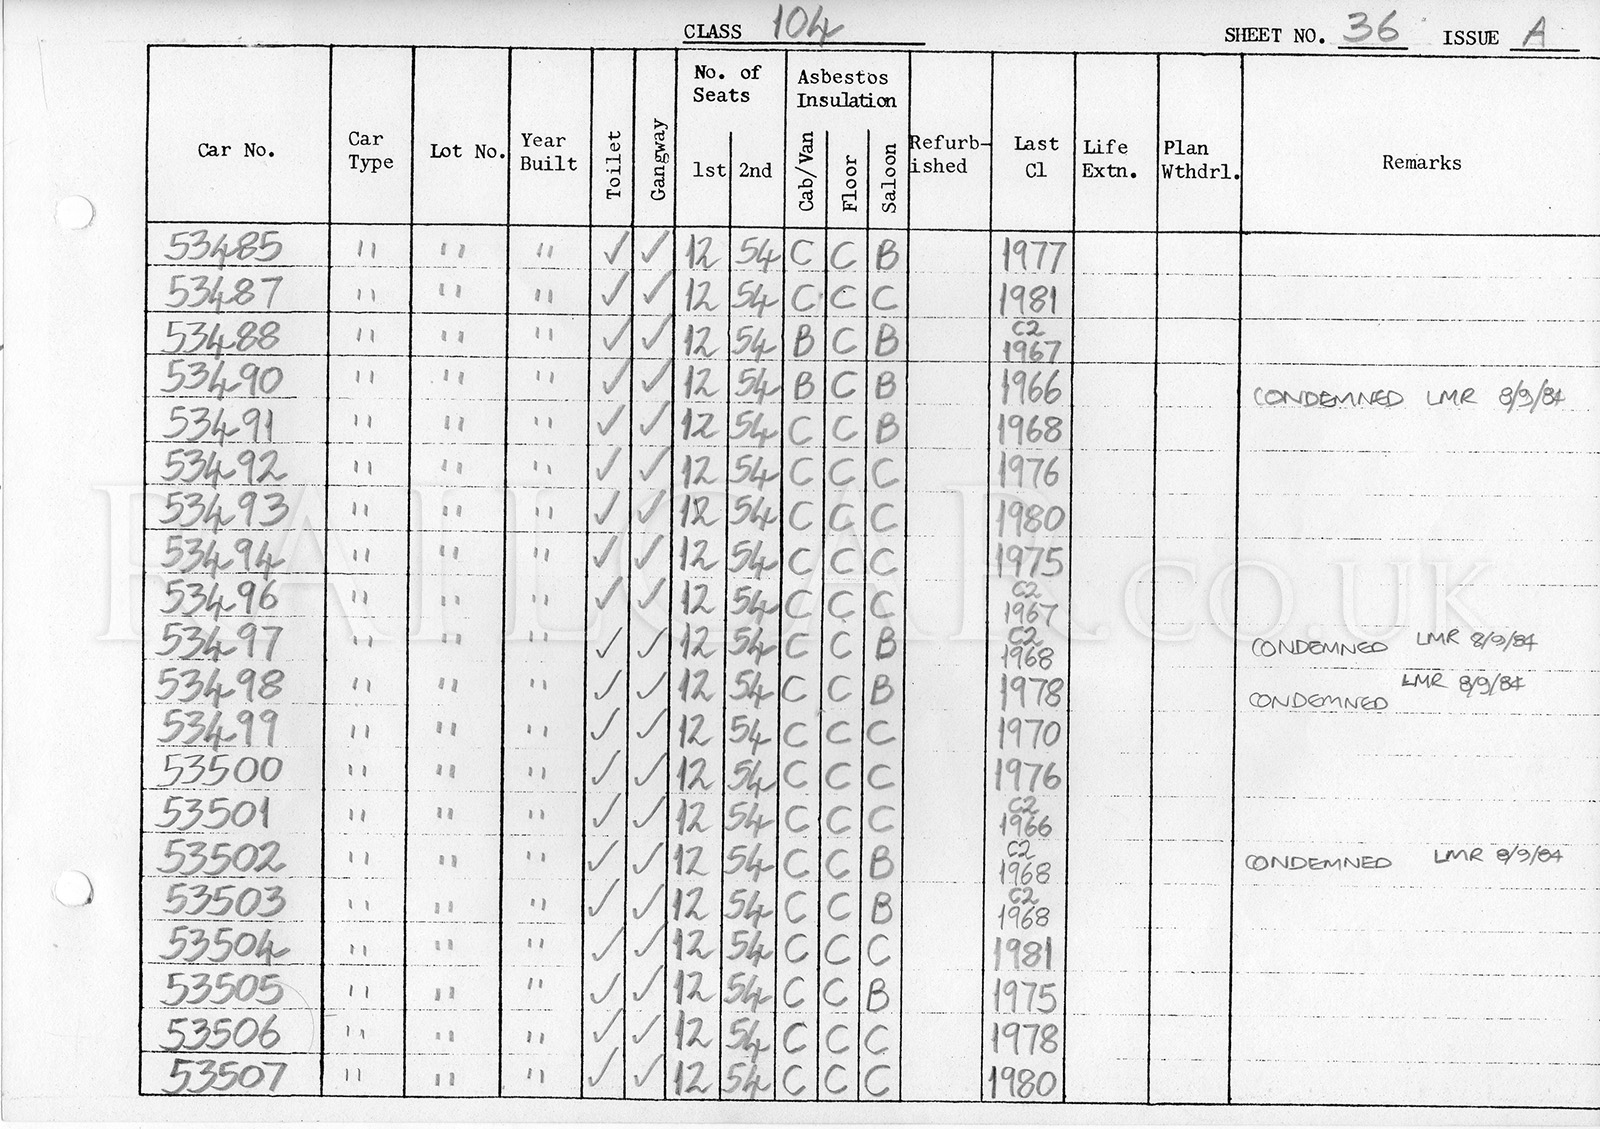 CLASS 104 SHEET NO. 36 ISSUE A
Car No. Car Type Lot No. Year Built Toilet Gangway No. of Seats 1st 2nd Asbestos Insulation Cab/Van Floor Saloon Refurb-ished Last Cl Life Extn. Plan Wthdrl. Remarks
53485 " " " ✓ ✓ 12 54 C C B 1977
53487 " " " ✓ ✓ 12 54 C C C 1981
53488 " " " ✓ ✓ 12 54 B C B C2 1967
53490 " " " ✓ ✓ 12 54 B C B 1966 CONDEMNED LMR 8/9/84
53491 " " " ✓ ✓ 12 54 C C B 1968
53492 " " " ✓ ✓ 12 54 C C C 1976
53493 " " " ✓ ✓ 12 54 C C C 1980
53494 " " " ✓ ✓ 12 54 C C C 1975
53496 " " " ✓ ✓ 12 54 C C C C2 1967
53497 " " " ✓ ✓ 12 54 C C B C2 1968 CONDEMNED LMR 8/9/84
53498 " " " ✓ ✓ 12 54 C C B 1978 CONDEMNED LMR 8/9/84
53499 " " " ✓ ✓ 12 54 C C C 1970
53500 " " " ✓ ✓ 12 54 C C C 1976
53501 " " " ✓ ✓ 12 54 C C C C2 1966
53502 " " " ✓ ✓ 12 54 C C B C2 1968 CONDEMNED LMR 8/9/84
53503 " " " ✓ ✓ 12 54 C C B C2 1968
53504 " " " ✓ ✓ 12 54 C C C 1981
53505 " " " ✓ ✓ 12 54 C C B 1975
53506 " " " ✓ ✓ 12 54 C C C 1978
53507 " " " ✓ ✓ 12 54 C C C 1980
RAILCAR.CO.UK